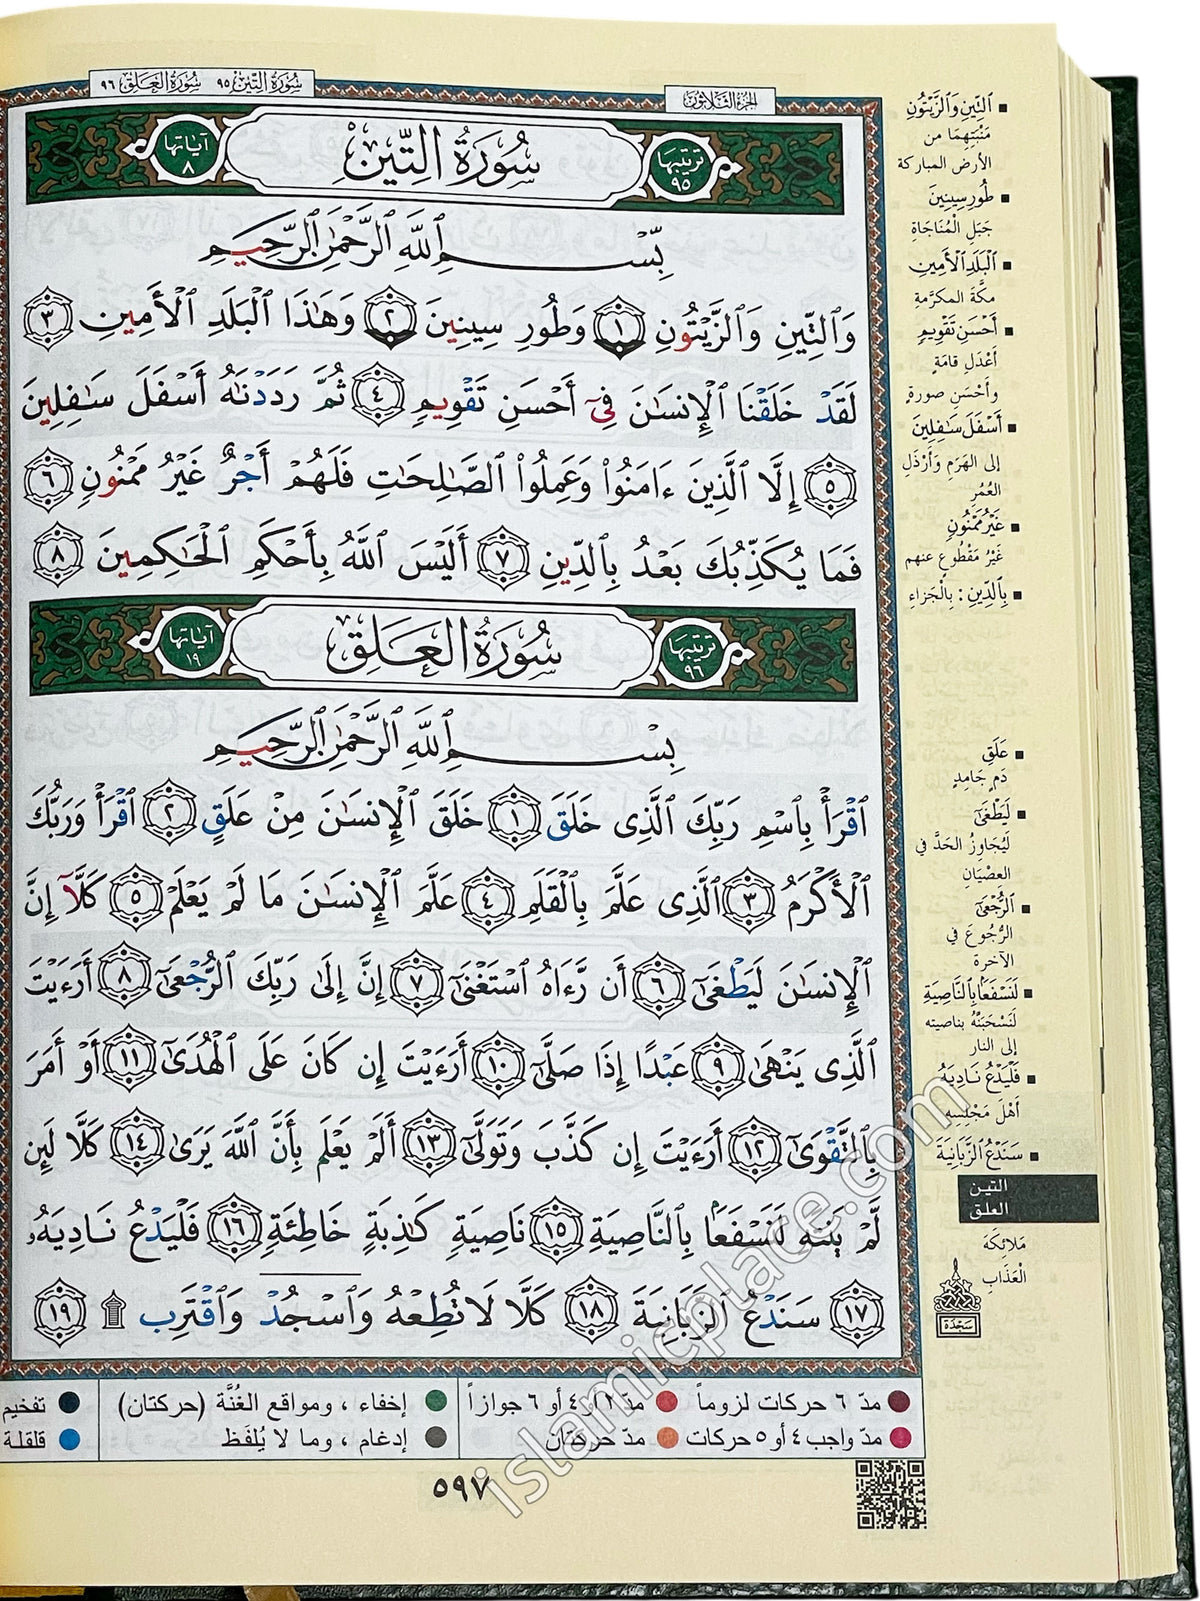 سُورَةُ التِّينِ ٩٥ سُورَةُ العَلَقِ ٩٦
الجُزءُ الثَّلَاثُونَ
ترتيبها ٩٥ سُورَةُ التِّينِ آياتها ٨
بِّسْمِ ٱللَّهِ ٱلرَّحْمَٰنِ ٱلرَّحِيمِ
وَٱلتِّينِ وَٱلزَّيْتُونِ ١ وَطُورِ سِينِينَ ٢ وَهَٰذَا ٱلْبَلَدِ ٱلْأَمِينِ ٣
لَقَدْ خَلَقْنَا ٱلْإِنسَٰنَ فِىٓ أَحْسَنِ تَقْوِيمٍ ٤ ثُمَّ رَدَدْنَٰهُ أَسْفَلَ سَٰفِلِينَ
٥ إِلَّا ٱلَّذِينَ ءَامَنُوا۟ وَعَمِلُوا۟ ٱلصَّٰلِحَٰتِ فَلَهُمْ أَجْرٌ غَيْرُ مَمْنُونٍ ٦
فَمَا يُكَذِّبُكَ بَعْدُ بِٱلدِّينِ ٧ أَلَيْسَ ٱللَّهُ بِأَحْكَمِ ٱلْحَٰكِمِينَ ٨
ترتيبها ٩٦ سُورَةُ العَلَقِ آياتها ١٩
بِسْمِ ٱللَّهِ ٱلرَّحْمَٰنِ ٱلرَّحِيمِ
ٱقْرَأْ بِٱسْمِ رَبِّكَ ٱلَّذِى خَلَقَ ١ خَلَقَ ٱلْإِنسَٰنَ مِنْ عَلَقٍ ٢ ٱقْرَأْ وَرَبُّكَ
ٱلْأَكْرَمُ ٣ ٱلَّذِى عَلَّمَ بِٱلْقَلَمِ ٤ عَلَّمَ ٱلْإِنسَٰنَ مَا لَمْ يَعْلَمْ ٥ كَلَّآ إِنَّ
ٱلْإِنسَٰنَ لَيَطْغَىٰٓ ٦ أَن رَّءَاهُ ٱسْتَغْنَىٰٓ ٧ إِنَّ إِلَىٰ رَبِّكَ ٱلرُّجْعَىٰٓ ٨ أَرَءَيْتَ
ٱلَّذِى يَنْهَىٰ ٩ عَبْدًا إِذَا صَلَّىٰٓ ١٠ أَرَءَيْتَ إِن كَانَ عَلَى ٱلْهُدَىٰٓ ١١ أَوْ أَمَرَ
بِٱلتَّقْوَىٰٓ ١٢ أَرَءَيْتَ إِن كَذَّبَ وَتَوَلَّىٰٓ ١٣ أَلَمْ يَعْلَم بِأَنَّ ٱللَّهَ يَرَىٰ ١٤ كَلَّا لَئِن
لَّمْ يَنتَهِ لَنَسْفَعًۢا بِٱلنَّاصِيَةِ ١٥ نَاصِيَةٍ كَٰذِبَةٍ خَاطِئَةٍ ١٦ فَلْيَدْعُ نَادِيَهُۥ
١٧ سَنَدْعُ ٱلزَّبَانِيَةَ ١٨ كَلَّا لَا تُطِعْهُ وَٱسْجُدْ وَٱقْتَرِب ۩ ١٩
▪ ٱلتِّينِ وَٱلزَّيْتُونِ
مَنْبَتِهِمَا من
الأرض المباركة
▪ طُورِ سِينِينَ
جَبَلِ الْمُنَاجَاةِ
▪ ٱلْبَلَدِ ٱلْأَمِينِ
مكَّةَ المكرَّمةِ
▪ أَحْسَنِ تَقْوِيمٍ
أَعْدَلِ قامَةٍ
وأحْسَنِ صورةٍ
▪ أَسْفَلَ سَٰفِلِينَ
إلى الهَرَمِ وَأَرْذَلِ
العُمُر
▪ غَيْرُ مَمْنُونٍ
غَيْرُ مَقْطُوعٍ عنهم
▪ بِٱلدِّينِ : بِالْجَزاءِ
▪ عَلَقٍ
دَمٍ جَامِدٍ
▪ لَيَطْغَىٰٓ
لَيُجَاوِزُ الحَدَّ في
العِصْيَانِ
▪ ٱلرُّجْعَىٰٓ
الرُّجُوعَ في
الآخرةِ
▪ لَنَسْفَعًا بِالنَّاصِيَةِ
لَنَسْحَبَنَّهُ بناصيته
إلى النار
▪ فَلْيَدْعُ نَادِيَهُ
أَهْلَ مَجْلِسِهِ
▪ سَنَدْعُ ٱلزَّبَانِيَةَ
التين
العلق
مَلائِكَةَ
الْعَذَابِ
سَجْدَة
مدّ ٦ حركات لزوماً مدّ ٢ أو ٤ أو ٦ جوازاً إخفاء ، ومواقع الغُنَّة (حركتان) تفخيم
مدّ واجب ٤ أو ٥ حركات مدّ حركتان إدغام ، وما لا يُلفَظ قلقلة
٥٩٧
islamicplace.com